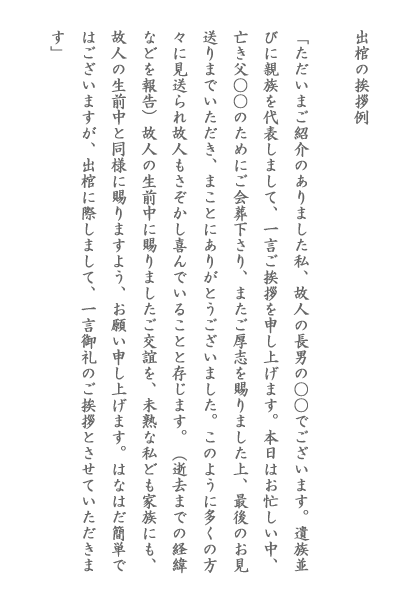 出棺の挨拶例
「ただいまご紹介のありました私、故人の長男の〇〇でございます。遺族並
びに親族を代表しまして、一言ご挨拶を申し上げます。本日はお忙しい中、
亡き父〇〇のためにご会葬下さり、またご厚志を賜りました上、最後のお見
送りまでいただき、まことにありがとうございました。このように多くの方
々に見送られ故人もさぞかし喜んでいることと存じます。（逝去までの経緯
などを報告）故人の生前中に賜りましたご交誼を、未熟な私ども家族にも、
故人の生前中と同様に賜りますよう、お願い申し上げます。はなはだ簡単で
はございますが、出棺に際しまして、一言御礼のご挨拶とさせていただきま
す」